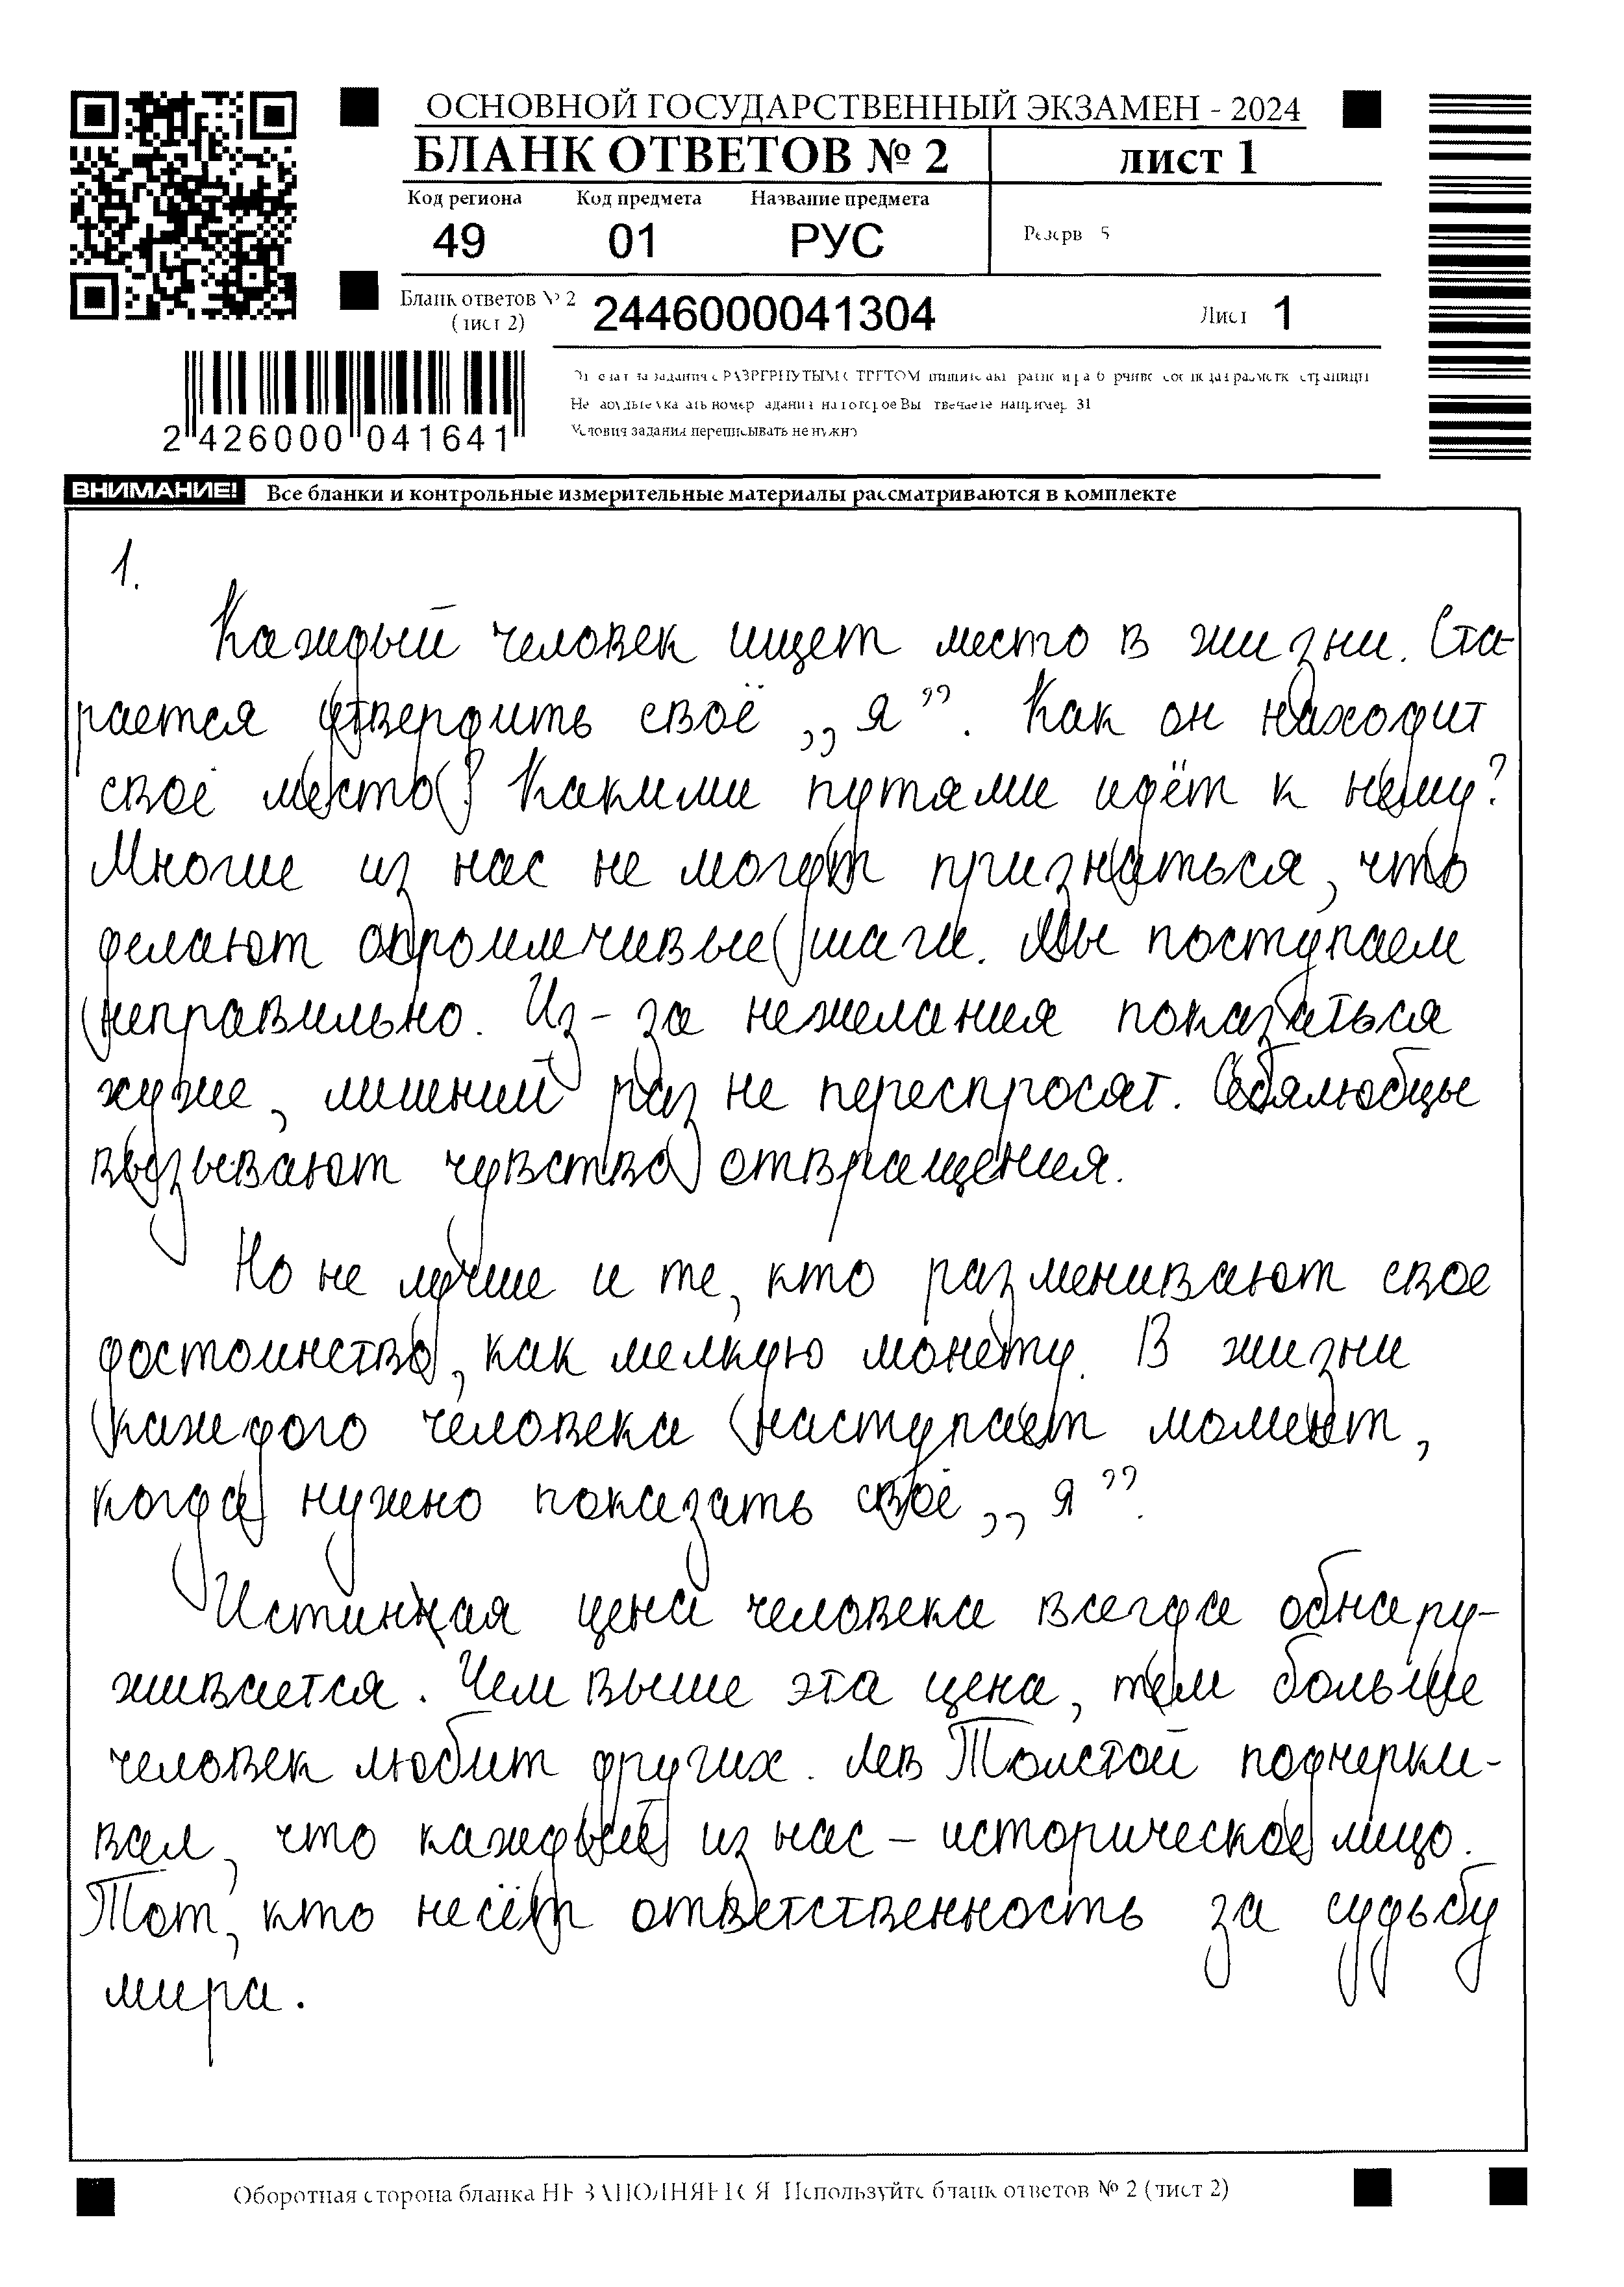 ОСНОВНОЙ ГОСУДАРСТВЕННЫЙ ЭКЗАМЕН - 2024
БЛАНК ОТВЕТОВ № 2
лист 1
Код региона
Код предмета
Название предмета
49
01
РУС
Резерв 5
Бланк ответов № 2
(лист 2)
2446000041304
Лист 1
2 426000 041641
Условия задания переписывать не нужно
ВНИМАНИЕ! Все бланки и контрольные измерительные материалы рассматриваются в комплекте
1.
Каждый человек ищет место в жизни. Ста-
рается утвердить своё „я”. Как он находит
своё место? Какими путями идёт к нему?
Многие из нас не могут признаться, что
делают опромечивые шаги. Мы поступаем
неправильно. Из-за нежелания показаться
хуже, лишний раз не переспросят. Себялюбцы
вызывают чувство отвращения.
Но не лучше и те, кто разменивают свое
достоинство, как мелкую монету. В жизни
каждого человека наступает момент,
когда нужно показать своё „я”.
Истинная цена человека всегда обнару-
живается. Чем выше эта цена, тем больше
человек любит других. Лев Толстой подчерки-
вал, что каждый из нас – историческое лицо.
Тот, кто несёт ответственность за судьбу
мира.
Оборотная сторона бланка НЕ ЗАПОЛНЯЕТСЯ. Используйте бланк ответов № 2 (лист 2)